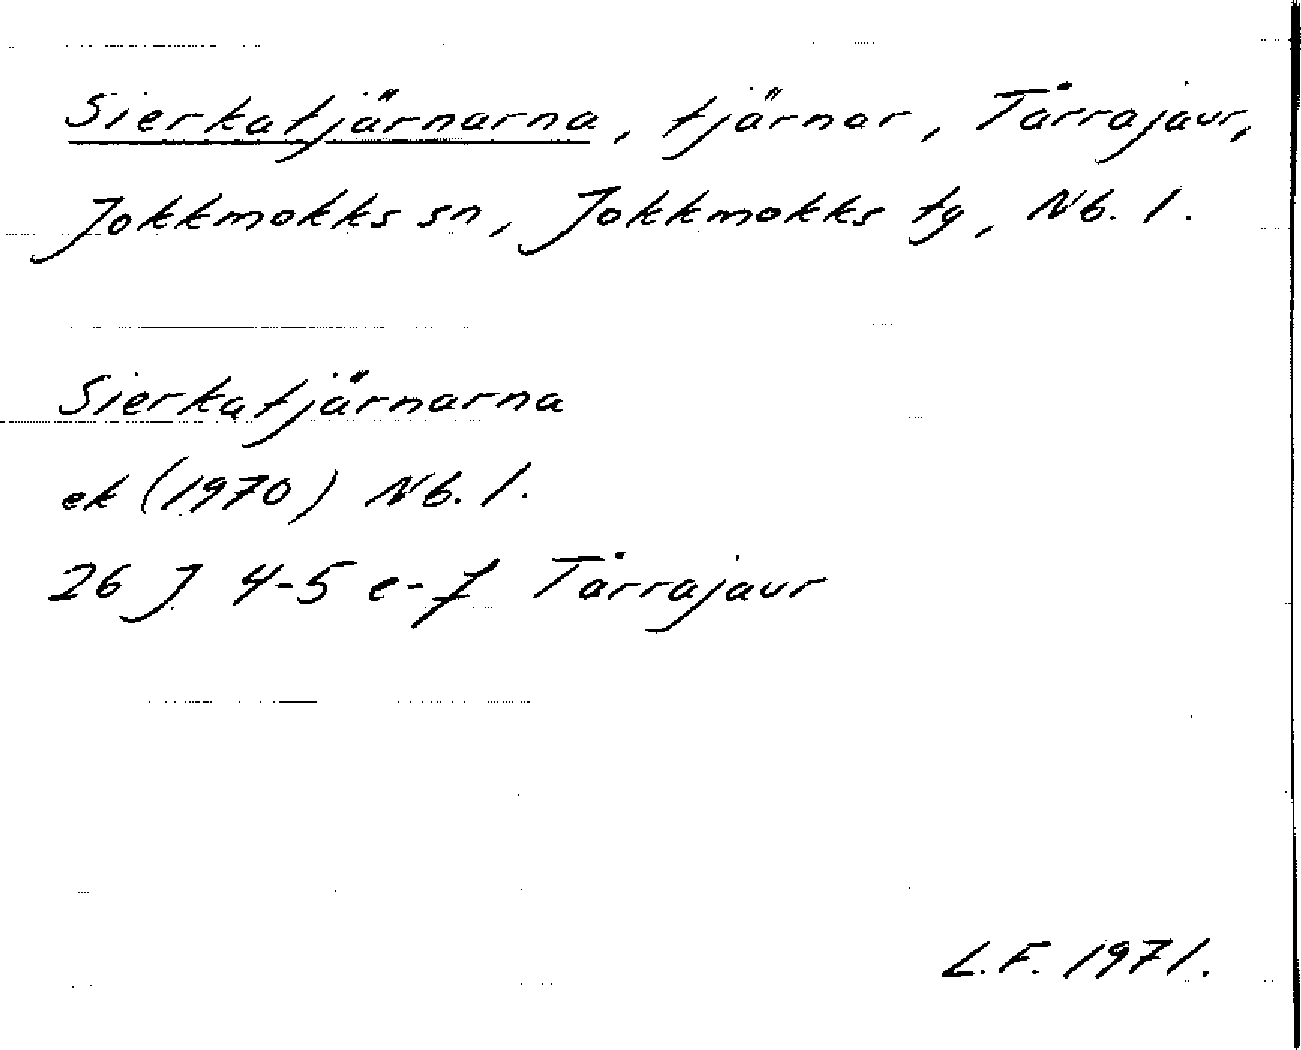 Sierkatjärnarna, tjärnar, Tårrajaur,
Jokkmokks sn, Jokkmokks tg, Nb. l.
Sierkatjärnarna
ek (1970) Nb. l.
26 J 4-5 e-f Tårrajaur
L.F. 1971.